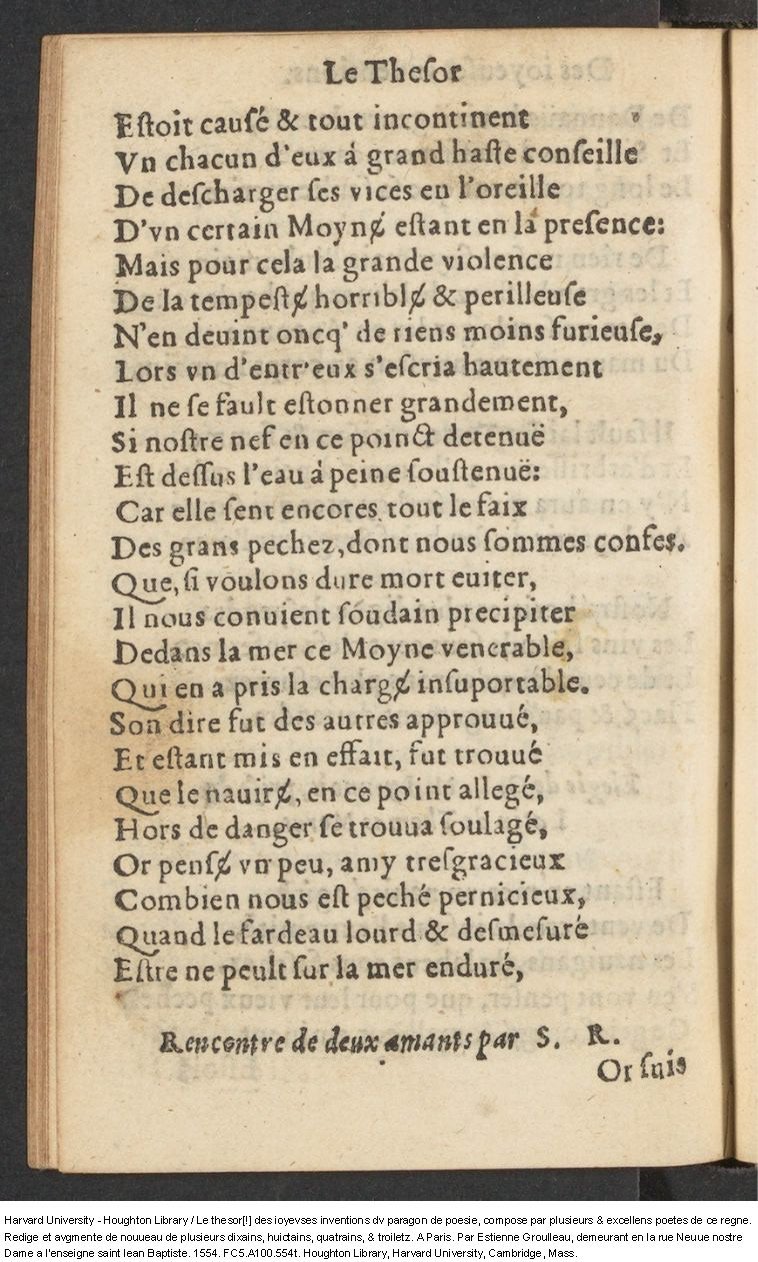 Le Theſor
Eſtoit cauſé & tout incontinent
Vn chacun d'eux á grand haſte conſeille
De deſcharger ſes vices en l'oreille
D'vn certain Moynɇ eſtant en la preſence:
Mais pour cela la grande violence
De la tempeſtɇ horriblɇ & perilleuſe
N'en deuint oncq' de riens moins furieuſe,
Lors vn d'entr'eux s'eſcria hautement
Il ne ſe fault eſtonner grandement,
Si noſtre nef en ce poinct detenuë
Eſt deſſus l'eau á peine ſouſtenuë:
Car elle ſent encores tout le faix
Des grans pechez, dont nous ſommes confes.
Que, ſi voulons dure mort euiter,
Il nous conuient ſoudain precipiter
Dedans la mer ce Moyne venerable,
Qui en a pris la chargɇ inſuportable.
Son dire fut des autres approuué,
Et eſtant mis en effait, fut trouué
Que le nauirɇ, en ce point allegé,
Hors de danger ſe trouua ſoulagé,
Or penſɇ vn peu, amy treſgracieux
Combien nous eſt peché pernicieux,
Quand le fardeau lourd & deſmeſuré
Eſtre ne peult ſur la mer enduré,
Rencontre de deux amants par S. R.
Or ſuis
Harvard University - Houghton Library / Le thesor[!] des ioyevses inventions dv paragon de poesie, compose par plusieurs & excellens poetes de ce regne.
Redige et avgmente de nouueau de plusieurs dixains, huictains, quatrains, & troiletz. A Paris. Par Estienne Groulleau, demeurant en la rue Neuue nostre
Dame a l'enseigne saint Iean Baptiste. 1554. FC5.A100.554t. Houghton Library, Harvard University, Cambridge, Mass.